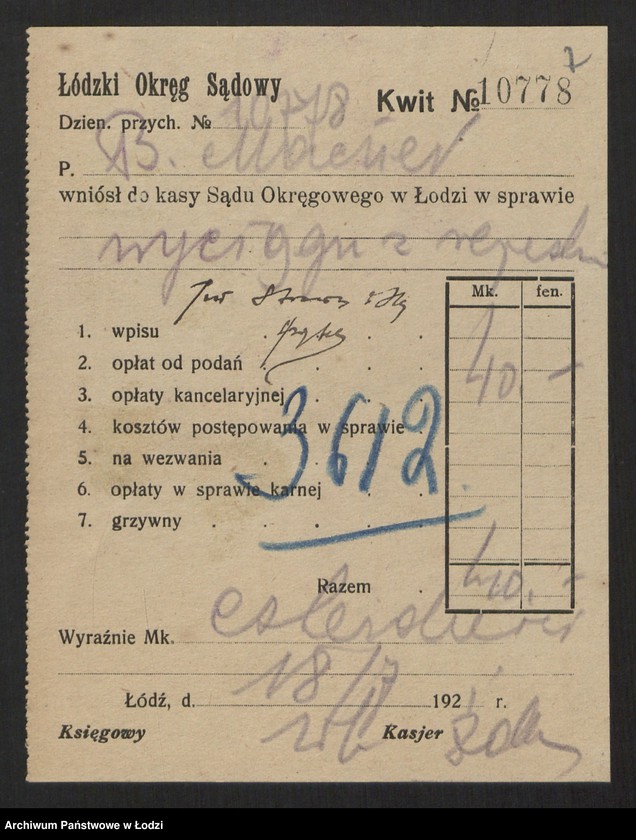 7
Łódzki Okręg Sądowy
Kwit № 10778
Dzien. przych. № 10778
P. B.
wniósł do kasy Sądu Okręgowego w Łodzi w sprawie
wyciągu z rejestru
Mk. fen.
1. wpisu
2. opłat od podań 40.-
3. opłaty kancelaryjnej
4. kosztów postępowania w sprawie
5. na wezwania
6. opłaty w sprawie karnej
7. grzywny
3612
Razem 40.-
Wyraźnie Mk. czterdzieści
18/
Łódź, d. 192 r.
Księgowy Kasjer
Archiwum Państwowe w Łodzi